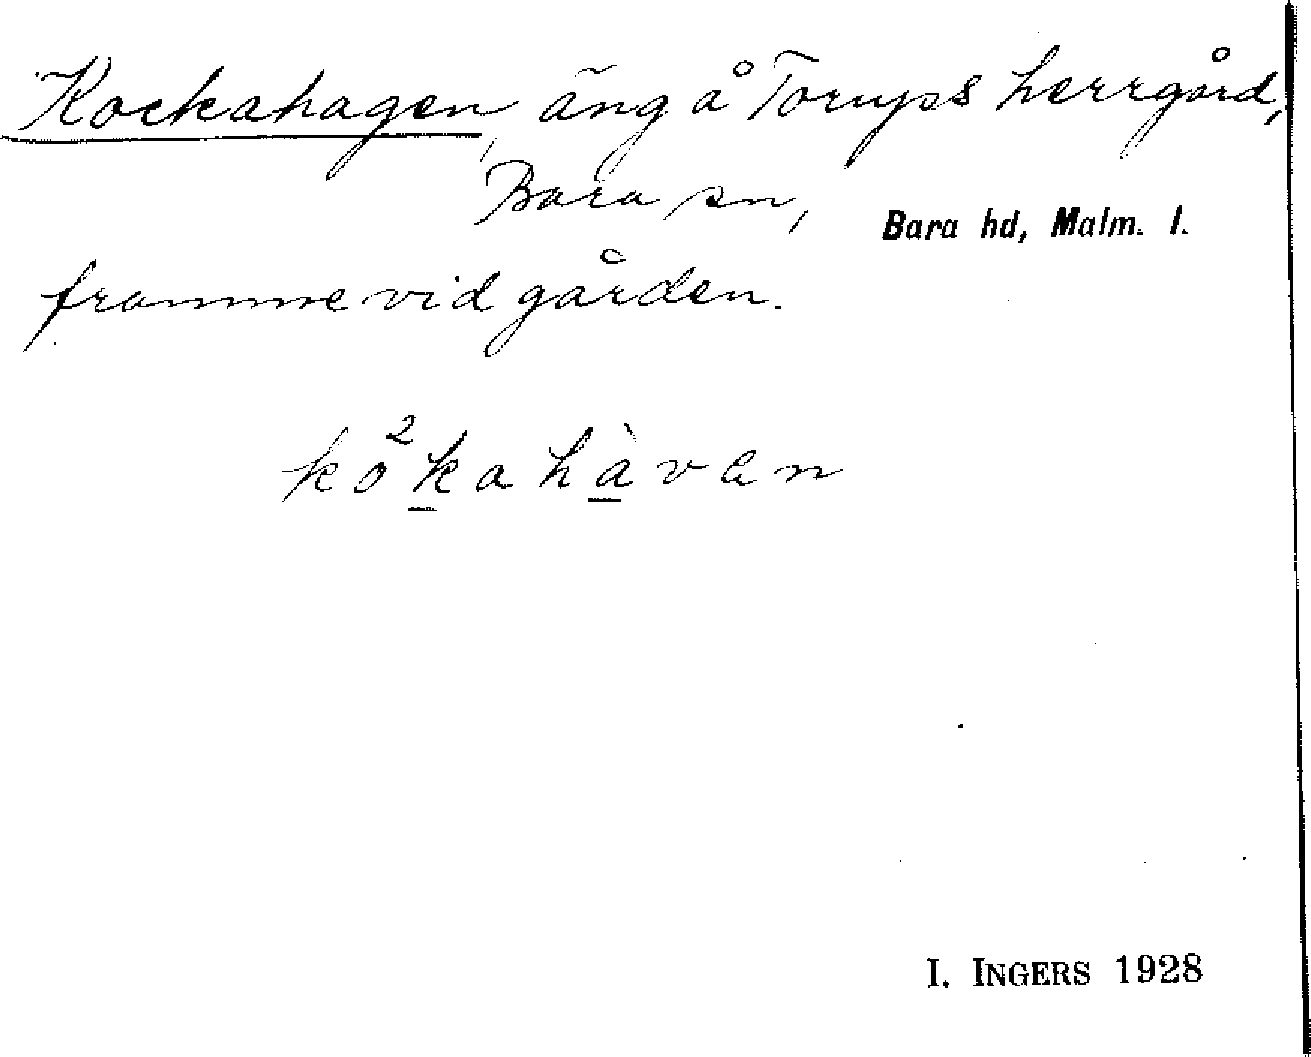 Kockahagen, äng å Torups herrgård,
Bara sn, Bara hd, Malm. l.
framme vid gården.
ko²kahàvan
I. INGERS 1928